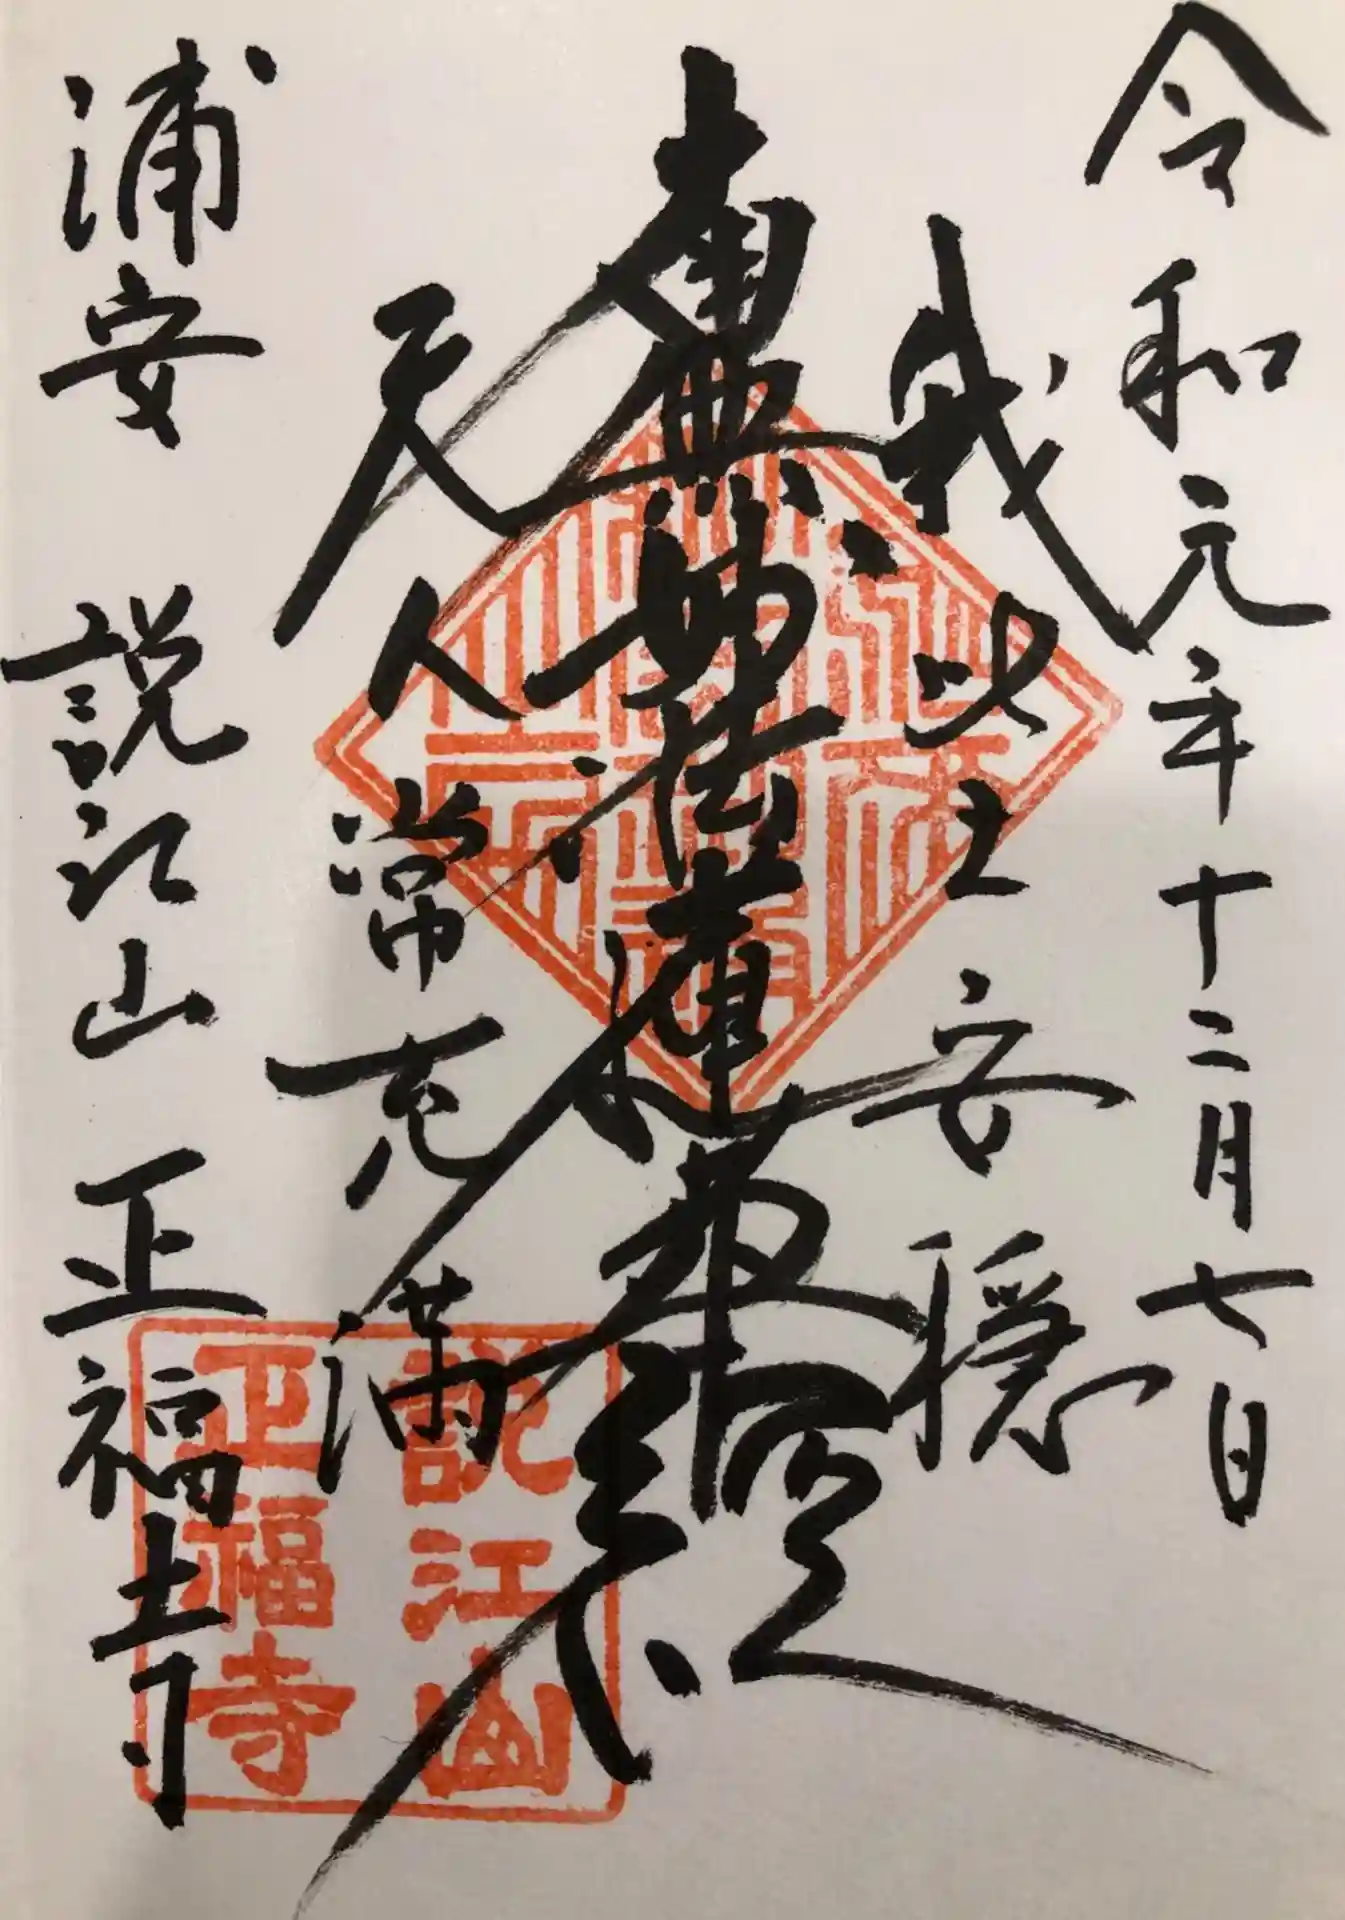 令和元年十二月七日
我此土安穏
南無妙法蓮華経
天人常充満
浦安 説江山 正福寺
説江山
正福寺